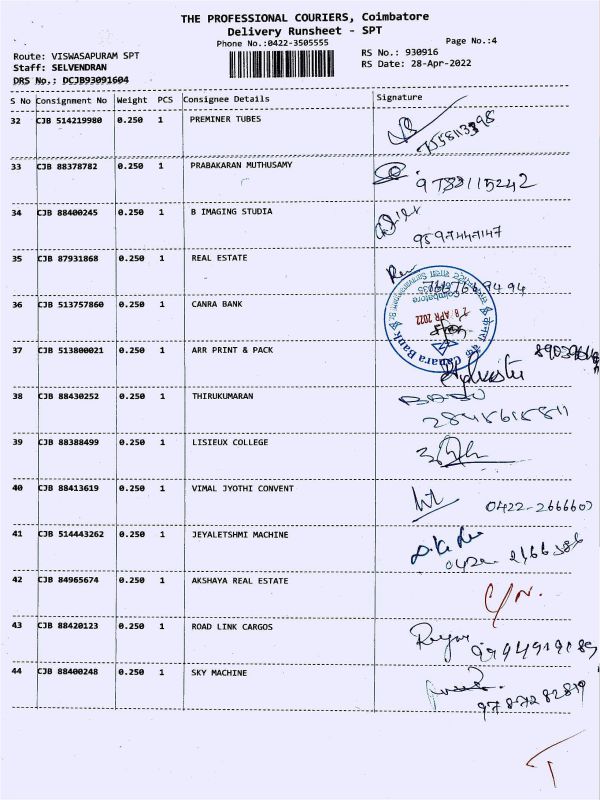 THE PROFESSIONAL COURIERS, Coimbatore
Delivery Runsheet - SPT
Phone No.:0422-3505555
Page No.:4
Route: VISWASAPURAM SPT
RS No.: 930916
Staff: SELVENDRAN
RS Date: 28-Apr-2022
DRS No.: DCJB93091604
S No Consignment No Weight PCS Consignee Details Signature
32 CJB 514219980 0.250 1 PREMINER TUBES
33 CJB 88378782 0.250 1 PRABAKARAN MUTHUSAMY
34 CJB 88400245 0.250 1 B IMAGING STUDIA
35 CJB 87931868 0.250 1 REAL ESTATE
36 CJB 513757860 0.250 1 CANRA BANK
Coimbatore
28 APR 2022
Canara Bank
37 CJB 513800021 0.250 1 ARR PRINT & PACK
38 CJB 88430252 0.250 1 THIRUKUMARAN BABU
39 CJB 88388499 0.250 1 LISIEUX COLLEGE
40 CJB 88413619 0.250 1 VIMAL JYOTHI CONVENT
41 CJB 514443262 0.250 1 JEYALETSHMI MACHINE
42 CJB 84965674 0.250 1 AKSHAYA REAL ESTATE
43 CJB 88420123 0.250 1 ROAD LINK CARGOS
44 CJB 88400248 0.250 1 SKY MACHINE